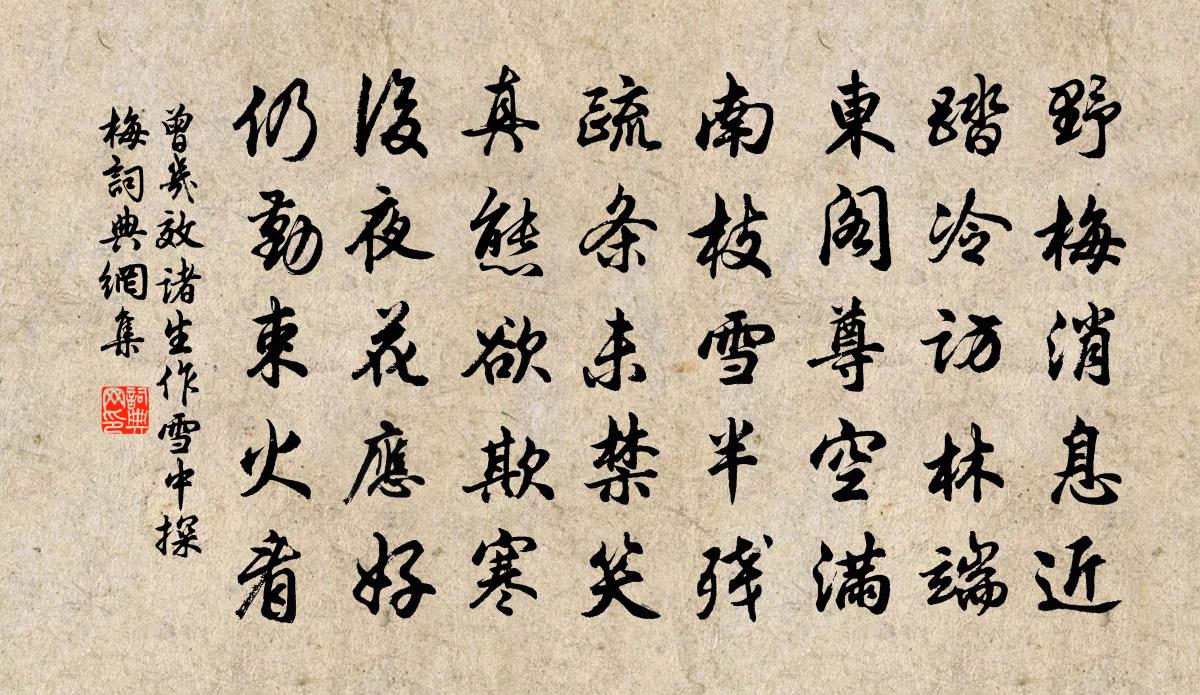 野梅消息近
踏冷访林端
東阁尊空满
南枝雪半残
疏条未禁笑
真態欲欺寒
後夜花應好
仍勤束火看
曾幾效诸生作雪中探
梅詞典網集
詞典
网印